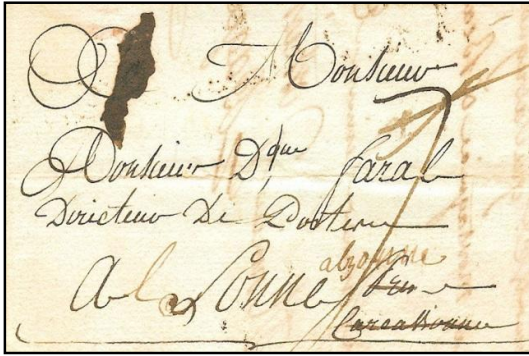 A Monsieur
7
Monsieur Dque Faral
Directeur De
alzonne
A
Carcassonne